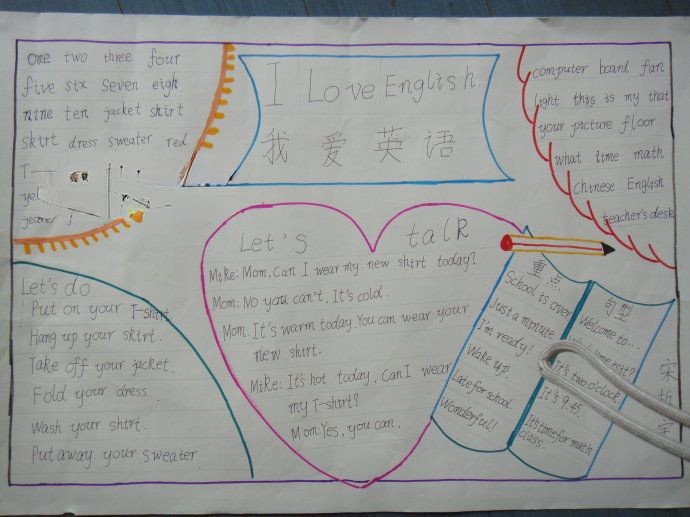 one two three four
five six seven eigh
nine ten jacket shirt
skirt dress sweater red
T
yel
I Love English.
我爱英语
computer board fan
light this is my that
your picture floor
what time math
Chinese English
teacher's desk
Let's do
Put on your T-shirt.
Hang up your skirt.
Take off your jacket.
Fold your dress.
Wash your shirt.
Put away your sweater.
Let's talk
Mike: Mom. Can I wear my new shirt today?
Mom: No you can't. It's cold.
Mom: It's warm today. You can wear your
new shirt.
Mike: It's hot today. Can I wear
my T-shirt?
Mom: Yes, you can.
重点
School is over
Just a minute
I'm ready!
Wake up.
Late for school.
Wonderful!
句型
Welcome to....
It's two o'clock
It's 9:45.
It's time for math
class.
宋